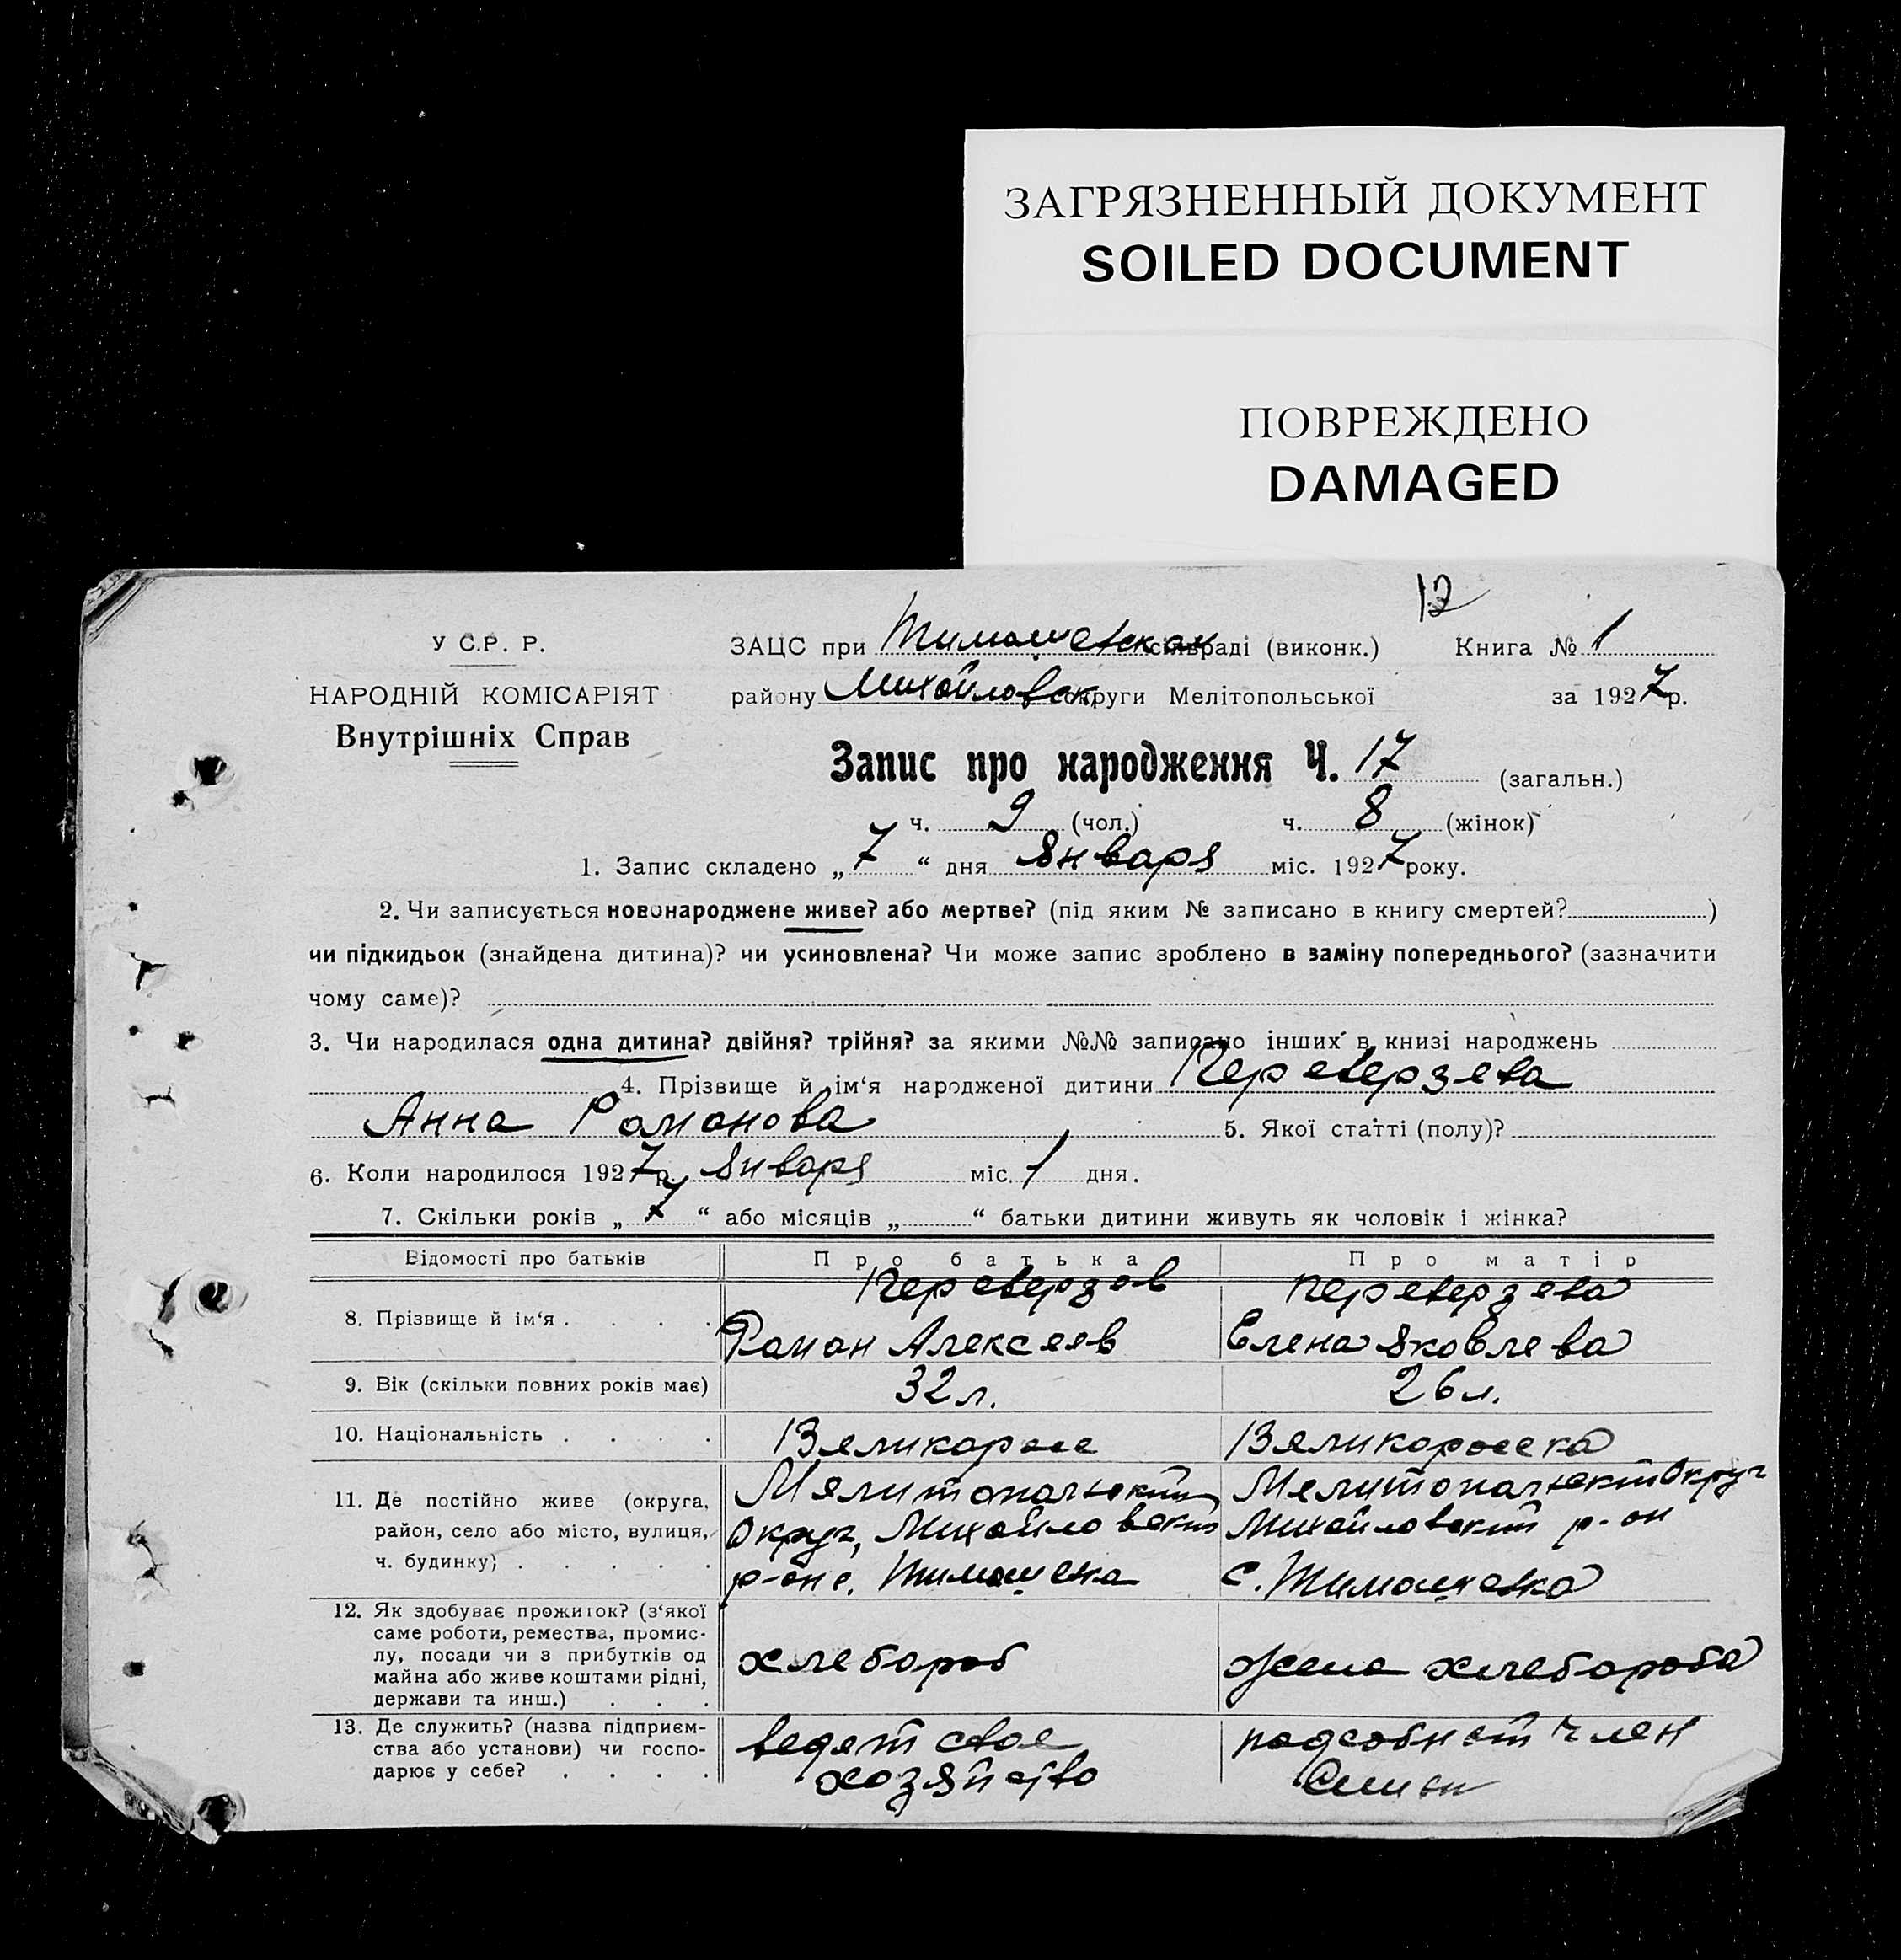 ЗАГРЯЗНЕННЫЙ ДОКУМЕНТ
SOILED DOCUMENT
ПОВРЕЖДЕНО
DAMAGED
12
У С.Р. Р.
НАРОДНІЙ КОМІСАРІЯТ
Внутрішніх Справ
ЗАЦС при Тимошевской сільраді (виконк.) Книга № 1
району Михайловск округи Мелітопольської за 1927 р.
Запис про народження Ч. 17 (загальн.)
ч. 9 (чол.) ч. 8 (жінок)
1. Запис складено „ 7 “ дня Января міс. 1927 року.
2. Чи записується новонароджене живе? або мертве? (під яким № записано в книгу смертей? )
чи підкидьок (знайдена дитина)? чи усиновлена? Чи може запис зроблено в заміну попереднього? (зазначити
чому саме)?
3. Чи народилася одна дитина? двійня? трійня? за якими №№ записано інших в книзі народжень
4. Прізвище й ім‘я народженої дитини Переверзева
Анна Романова 5. Якої статті (полу)?
6. Коли народилося 1927 р. Января міс. 1 дня.
7. Скільки років „ 7 “ або місяців „ “ батьки дитини живуть як чоловік і жінка?
Відомості про батьків Про батька Про матір
8. Прізвище й ім‘я . . . . Переверзев Переверзева
Роман Алексеев Елена Яковлева
9. Вік (скільки повних років має) 32 л. 26 л.
10. Національність . . . . Великоросс Великоросска
11. Де постійно живе (округа, район, село або місто, вулиця, ч. будинку) . . . . .
Мелитопольский Мелитопольский Округ
Округ, Михайловский Михайловский р-он
р-он с. Тимошевка С. Тимошевка
12. Як здобуває прожиток? (з‘якої
саме роботи, ремества, промис-
лу, посади чи з прибутків од
майна або живе коштами рідні,
держави та инш.) . . .
хлебороб жена хлебороба
13. Де служить? (назва підприєм-
ства або установи) чи госпо-
дарює у себе? . . . .
ведет свое подсобный член
хозяйство Семьи